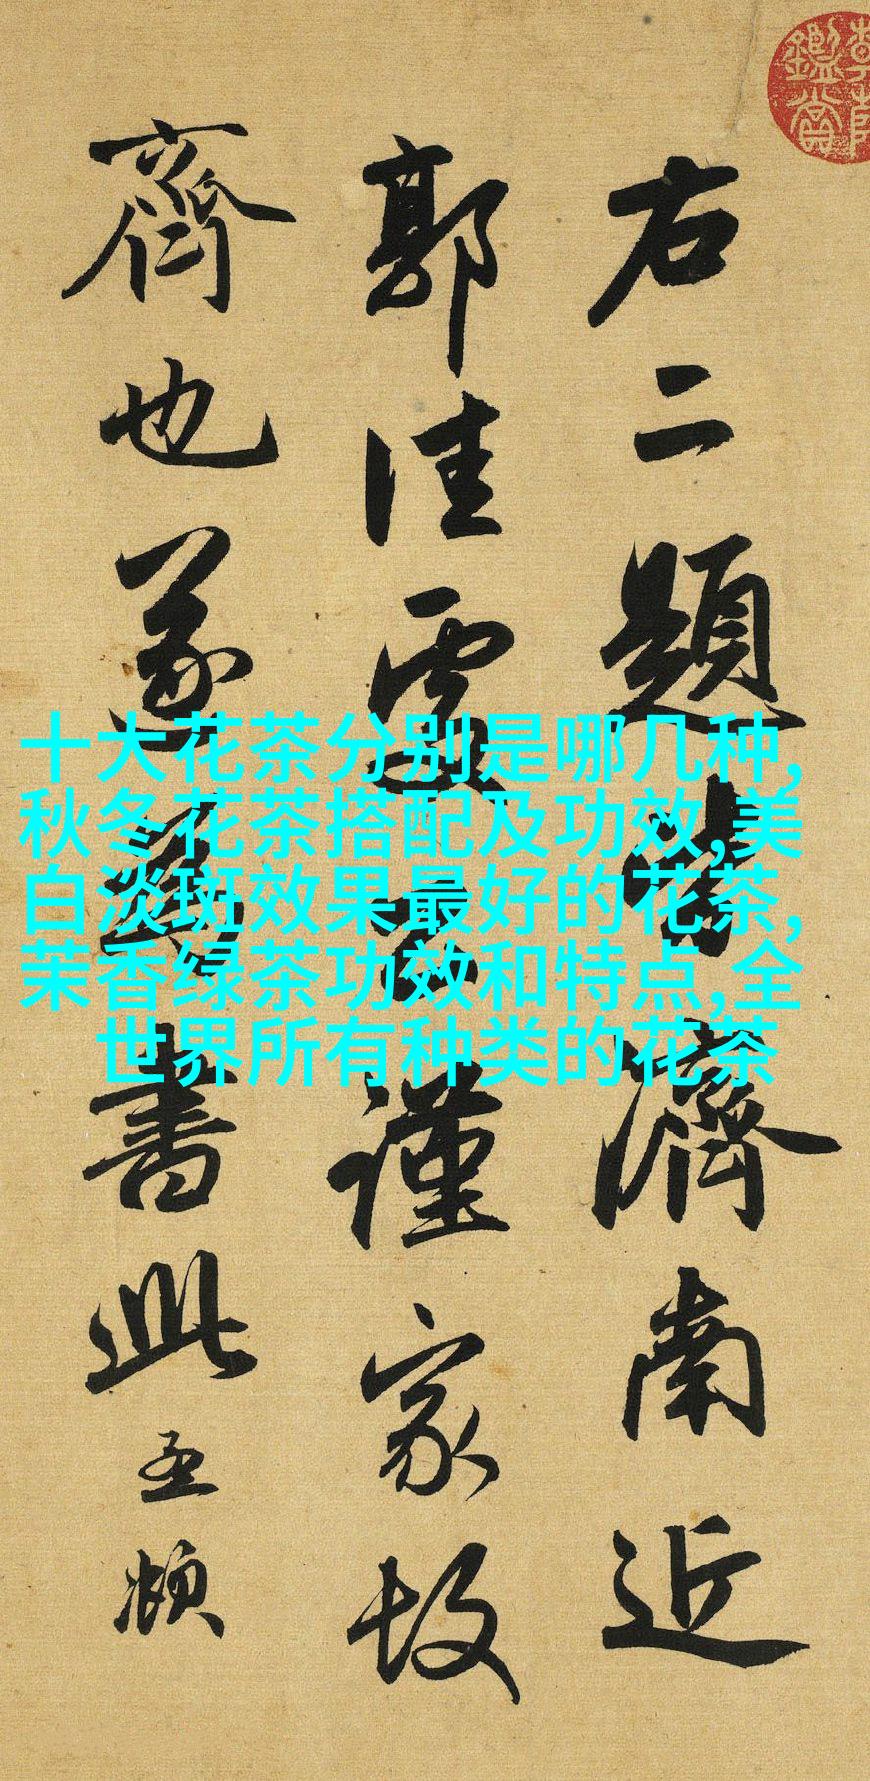 右二題濟南近
郭佳處公謹家故
齊也遂爲書此孟頫
十大花茶分别是哪几种,
秋冬花茶搭配及功效,美
白淡斑效果最好的花茶,
茉香绿茶功效和特点,全
世界所有种类的花茶